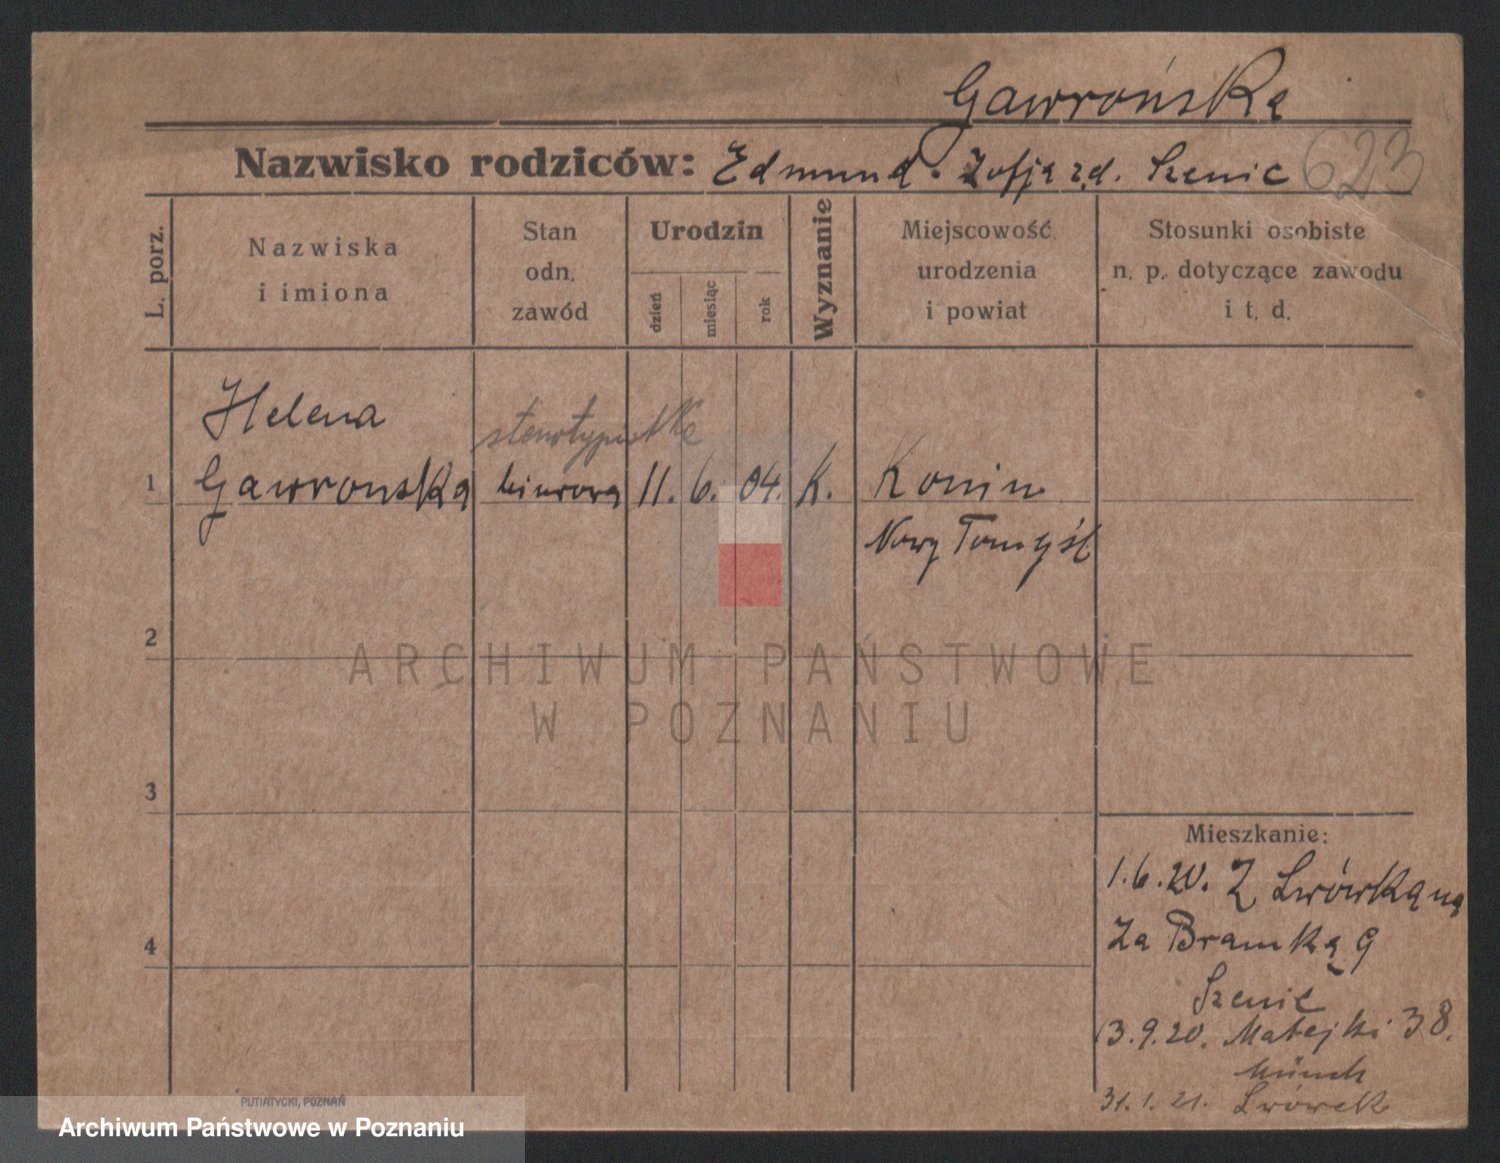 Gawrońska
Nazwisko rodziców: Edmund - Zofja zd. Szenic
623
L. porz.
Nazwiska
i imiona
Stan
odn.
zawód
Urodzin
dzień
miesiąc
rok
Wyznanie
Miejscowość
urodzenia
i powiat
Stosunki osobiste
n. p. dotyczące zawodu
i t. d.
Helena
stenotypistka
1 Gawronska biurowa 11. 6. 04. K. Konin
Nowy Tomyśl
2
ARCHIWUM PAŃSTWOWE
W POZNANIU
3
Mieszkanie:
1.6.20. Z Lwówka na
4 Za Bramką 9
Szenic
13.9.20. Matejki 38.
Münch
31.1.21. Lwówek
PUTIATYCKI, POZNAŃ
Archiwum Państwowe w Poznaniu